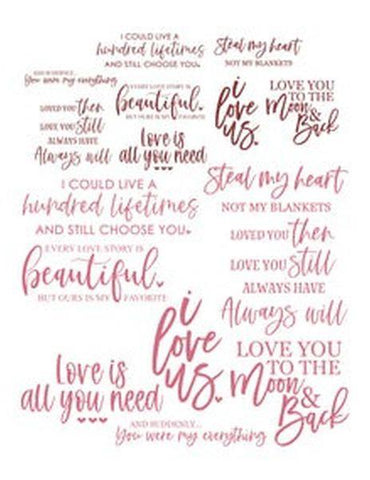 I COULD LIVE A
hundred lifetimes
AND STILL CHOOSE YOU
Steal my heart
NOT MY BLANKETS
AND SUDDENLY...
You were my everything
LOVED YOU then
LOVE YOU still
ALWAYS HAVE
Always will
EVERY LOVE STORY IS
beautiful.
BUT OURS IS MY FAVORITE
Love is
all you need
i
love
us.
LOVE YOU
TO THE
Moon
&
Back
I COULD LIVE A
hundred lifetimes
AND STILL CHOOSE YOU
EVERY LOVE STORY IS
beautiful.
BUT OURS IS MY FAVORITE
Steal my heart
NOT MY BLANKETS
LOVED YOU then
LOVE YOU still
ALWAYS HAVE
Always will
i
love
us.
LOVE YOU
TO THE
Moon
&
Back
Love is
all you need
AND SUDDENLY...
You were my everything